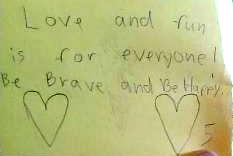 Love and fun
is for everyone!
Be Brave and Be Happy.